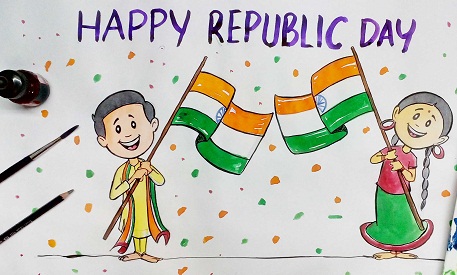 HAPPY REPUBLIC DAY